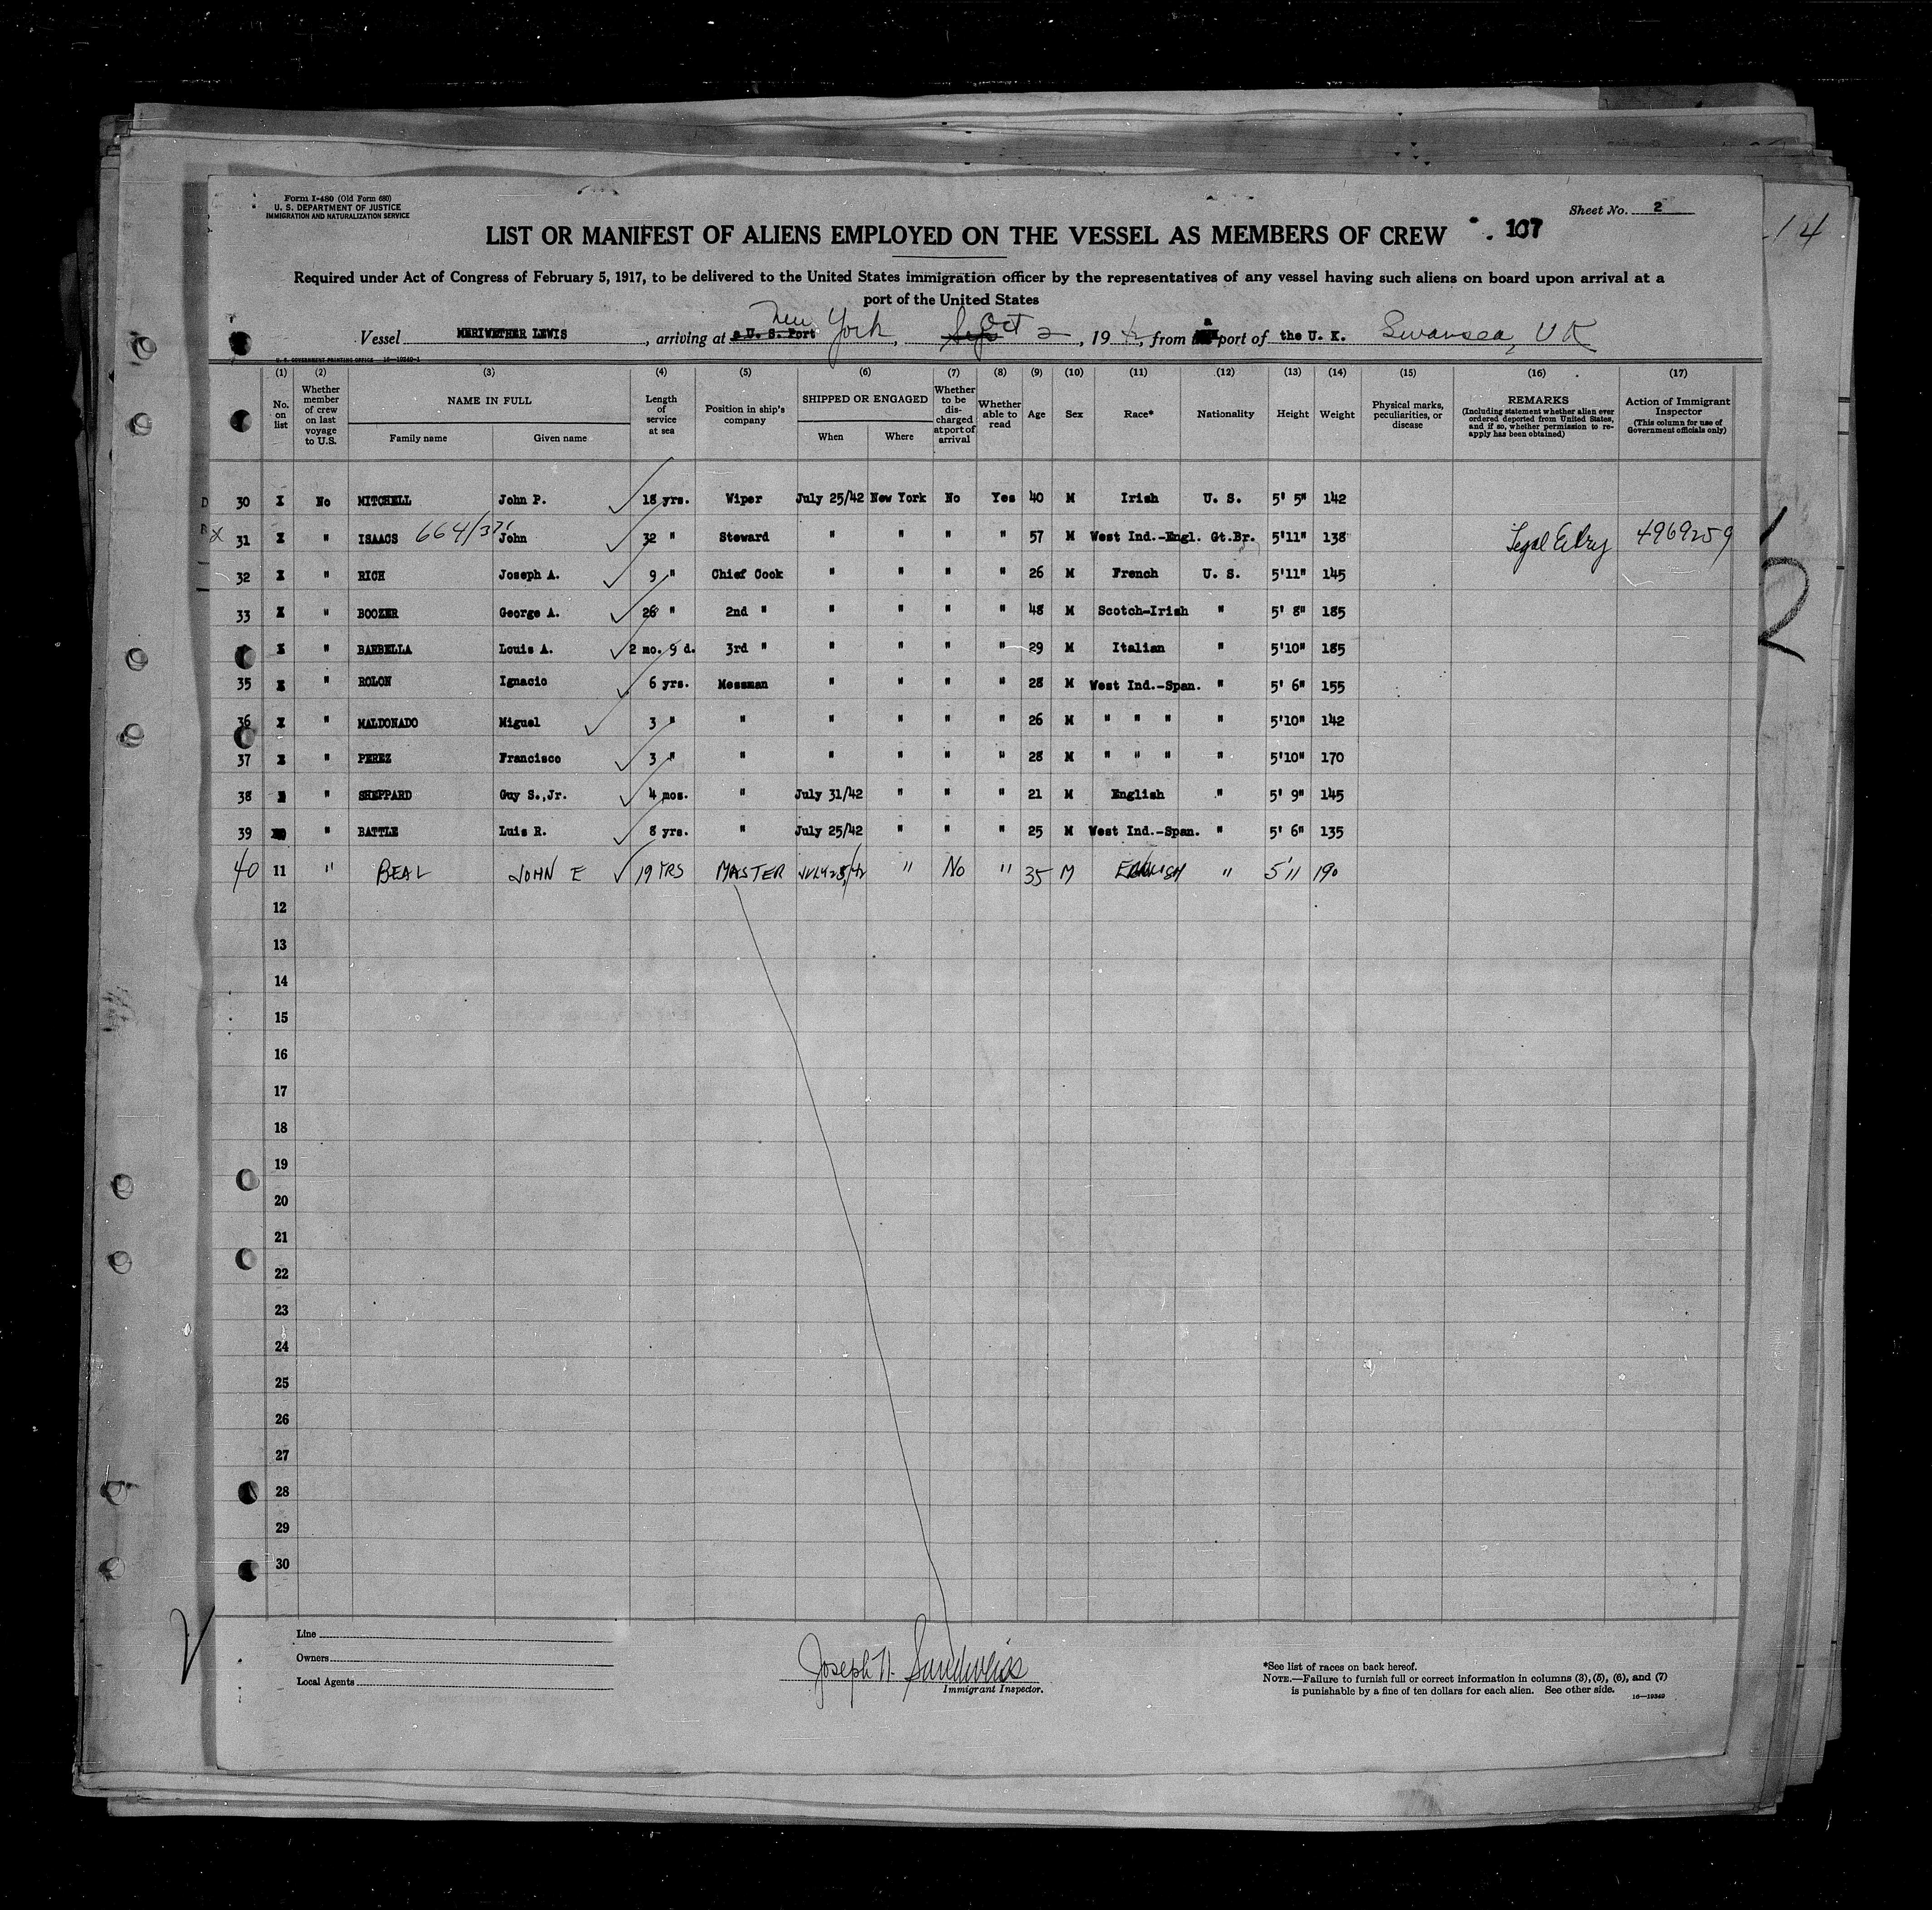 Form I-480 (Old Form 680)
U. S. DEPARTMENT OF JUSTICE
IMMIGRATION AND NATURALIZATION SERVICE
Sheet No. 2
LIST OR MANIFEST OF ALIENS EMPLOYED ON THE VESSEL AS MEMBERS OF CREW . 107
14
Required under Act of Congress of February 5, 1917, to be delivered to the United States immigration officer by the representatives of any vessel having such aliens on board upon arrival at a
port of the United States
Vessel MERIWETHER LEWIS, arriving at a U. S. Port New York, Sep Oct 2, 1942, from a port of the U. K. Swansea, UK
U. S. GOVERNMENT PRINTING OFFICE 16-19240-1
(1) (2) (3) (4) (5) (6) (7) (8) (9) (10) (11) (12) (13) (14) (15) (16) (17)
No. on list
Whether member of crew on last voyage to U.S.
NAME IN FULL
Family name Given name
Length of service at sea
Position in ship's company
SHIPPED OR ENGAGED
When Where
Whether to be discharged at port of arrival
Whether able to read
Age
Sex
Race*
Nationality
Height
Weight
Physical marks, peculiarities, or disease
REMARKS
(Including statement whether alien ever ordered deported from United States, and if so, whether permission to reapply has been obtained)
Action of Immigrant Inspector
(This column for use of Government officials only)
30 X No MITCHELL John P. 18 yrs. Wiper July 25/42 New York No Yes 40 M Irish U. S. 5' 5" 142
X 31 X " ISAACS 664/37 John 32 " Steward " " " " 57 M West Ind.-Engl. Gt.Br. 5'11" 138 Legal Entry 4969259
32 X " RICH Joseph A. 9 " Chief Cook " " " " 26 M French U. S. 5'11" 145
33 X " BOOZER George A. 26 " 2nd " " " " " 48 M Scotch-Irish " 5' 8" 185
X " BARBELLA Louis A. 2 mo. 9 d. 3rd " " " " " 29 M Italian " 5'10" 185
35 X " ROLON Ignacio 6 yrs. Messman " " " " 28 M West Ind.-Span. " 5' 6" 155
36 X " MALDONADO Miguel 3 " " " " " " 26 M " " " " 5'10" 142
37 X " PEREZ Francisco 3 " " " " " " 28 M " " " " 5'10" 170
38 X " SHEPPARD Guy S.,Jr. 4 mos. " July 31/42 " " " 21 M English " 5' 9" 145
39 " BATTLE Luis R. 8 yrs. " July 25/42 " " " 25 M West Ind.-Span. " 5' 6" 135
40 11 " BEAL JOHN E 19 YRS MASTER JULY 25/42 " No " 35 M ENGLISH " 5'11 190
12
12
13
14
15
16
17
18
19
20
21
22
23
24
25
26
27
28
29
30
Line
Owners
Local Agents
Joseph N. Sandweiss
Immigrant Inspector.
*See list of races on back hereof.
NOTE.—Failure to furnish full or correct information in columns (3), (5), (6), and (7)
is punishable by a fine of ten dollars for each alien. See other side.
16—19240